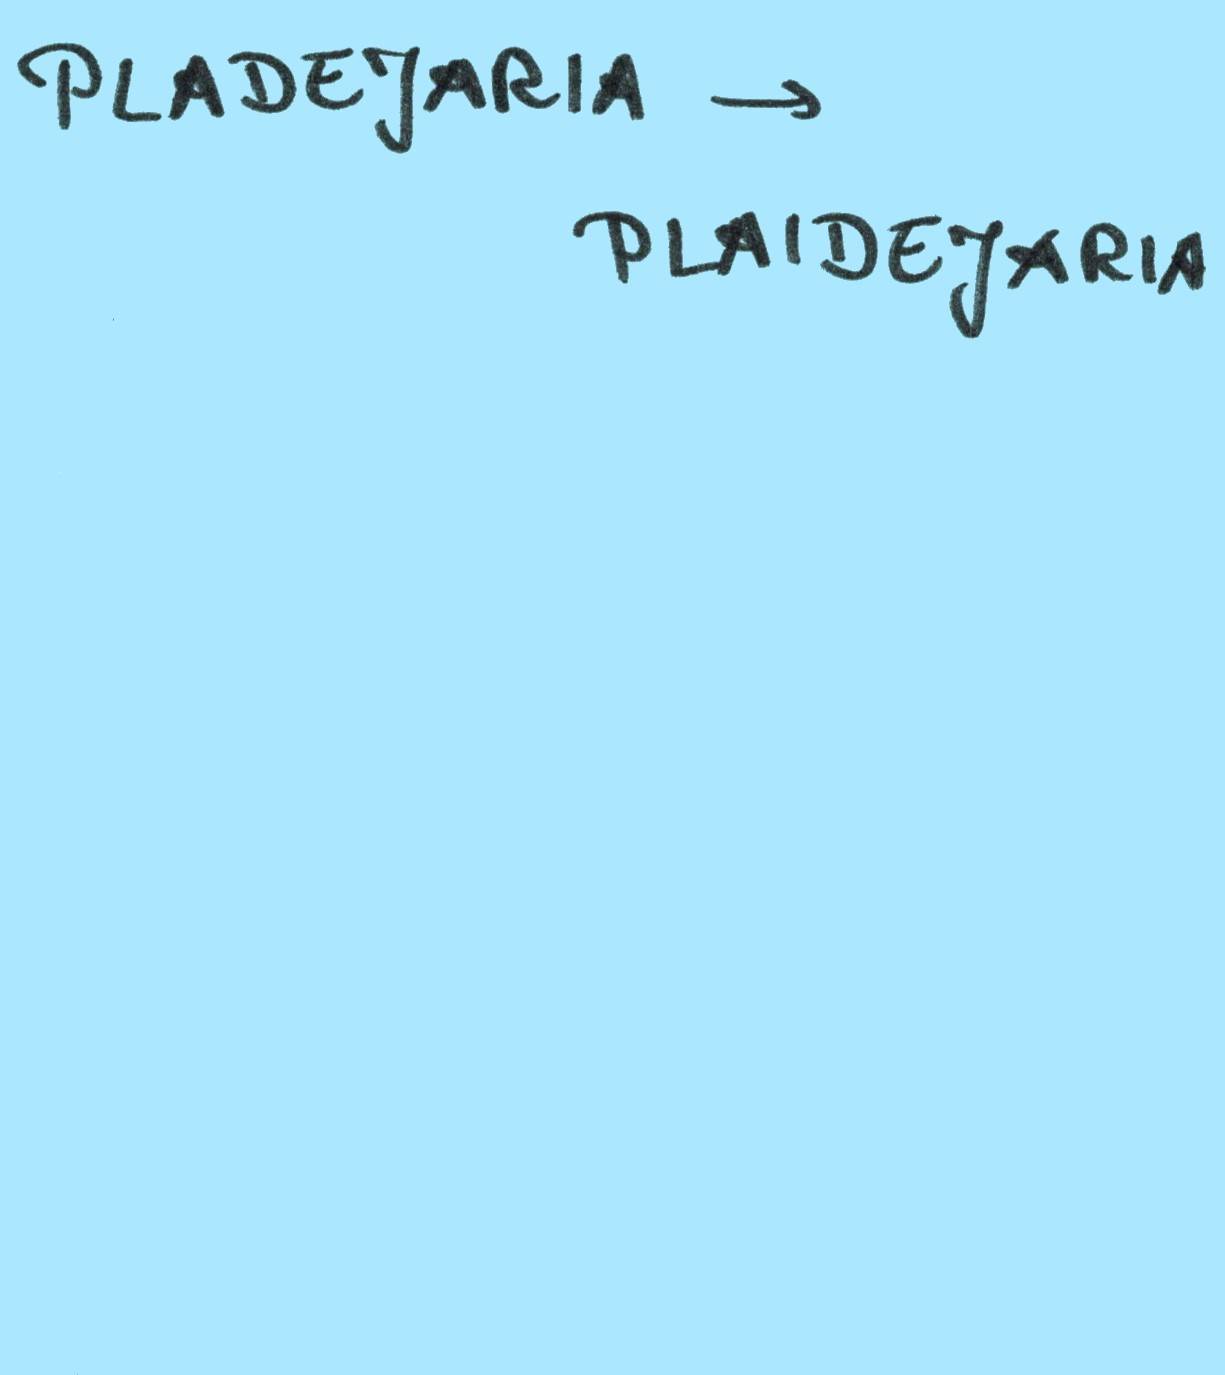 PLADEJARIA →
PLAIDEJARIA